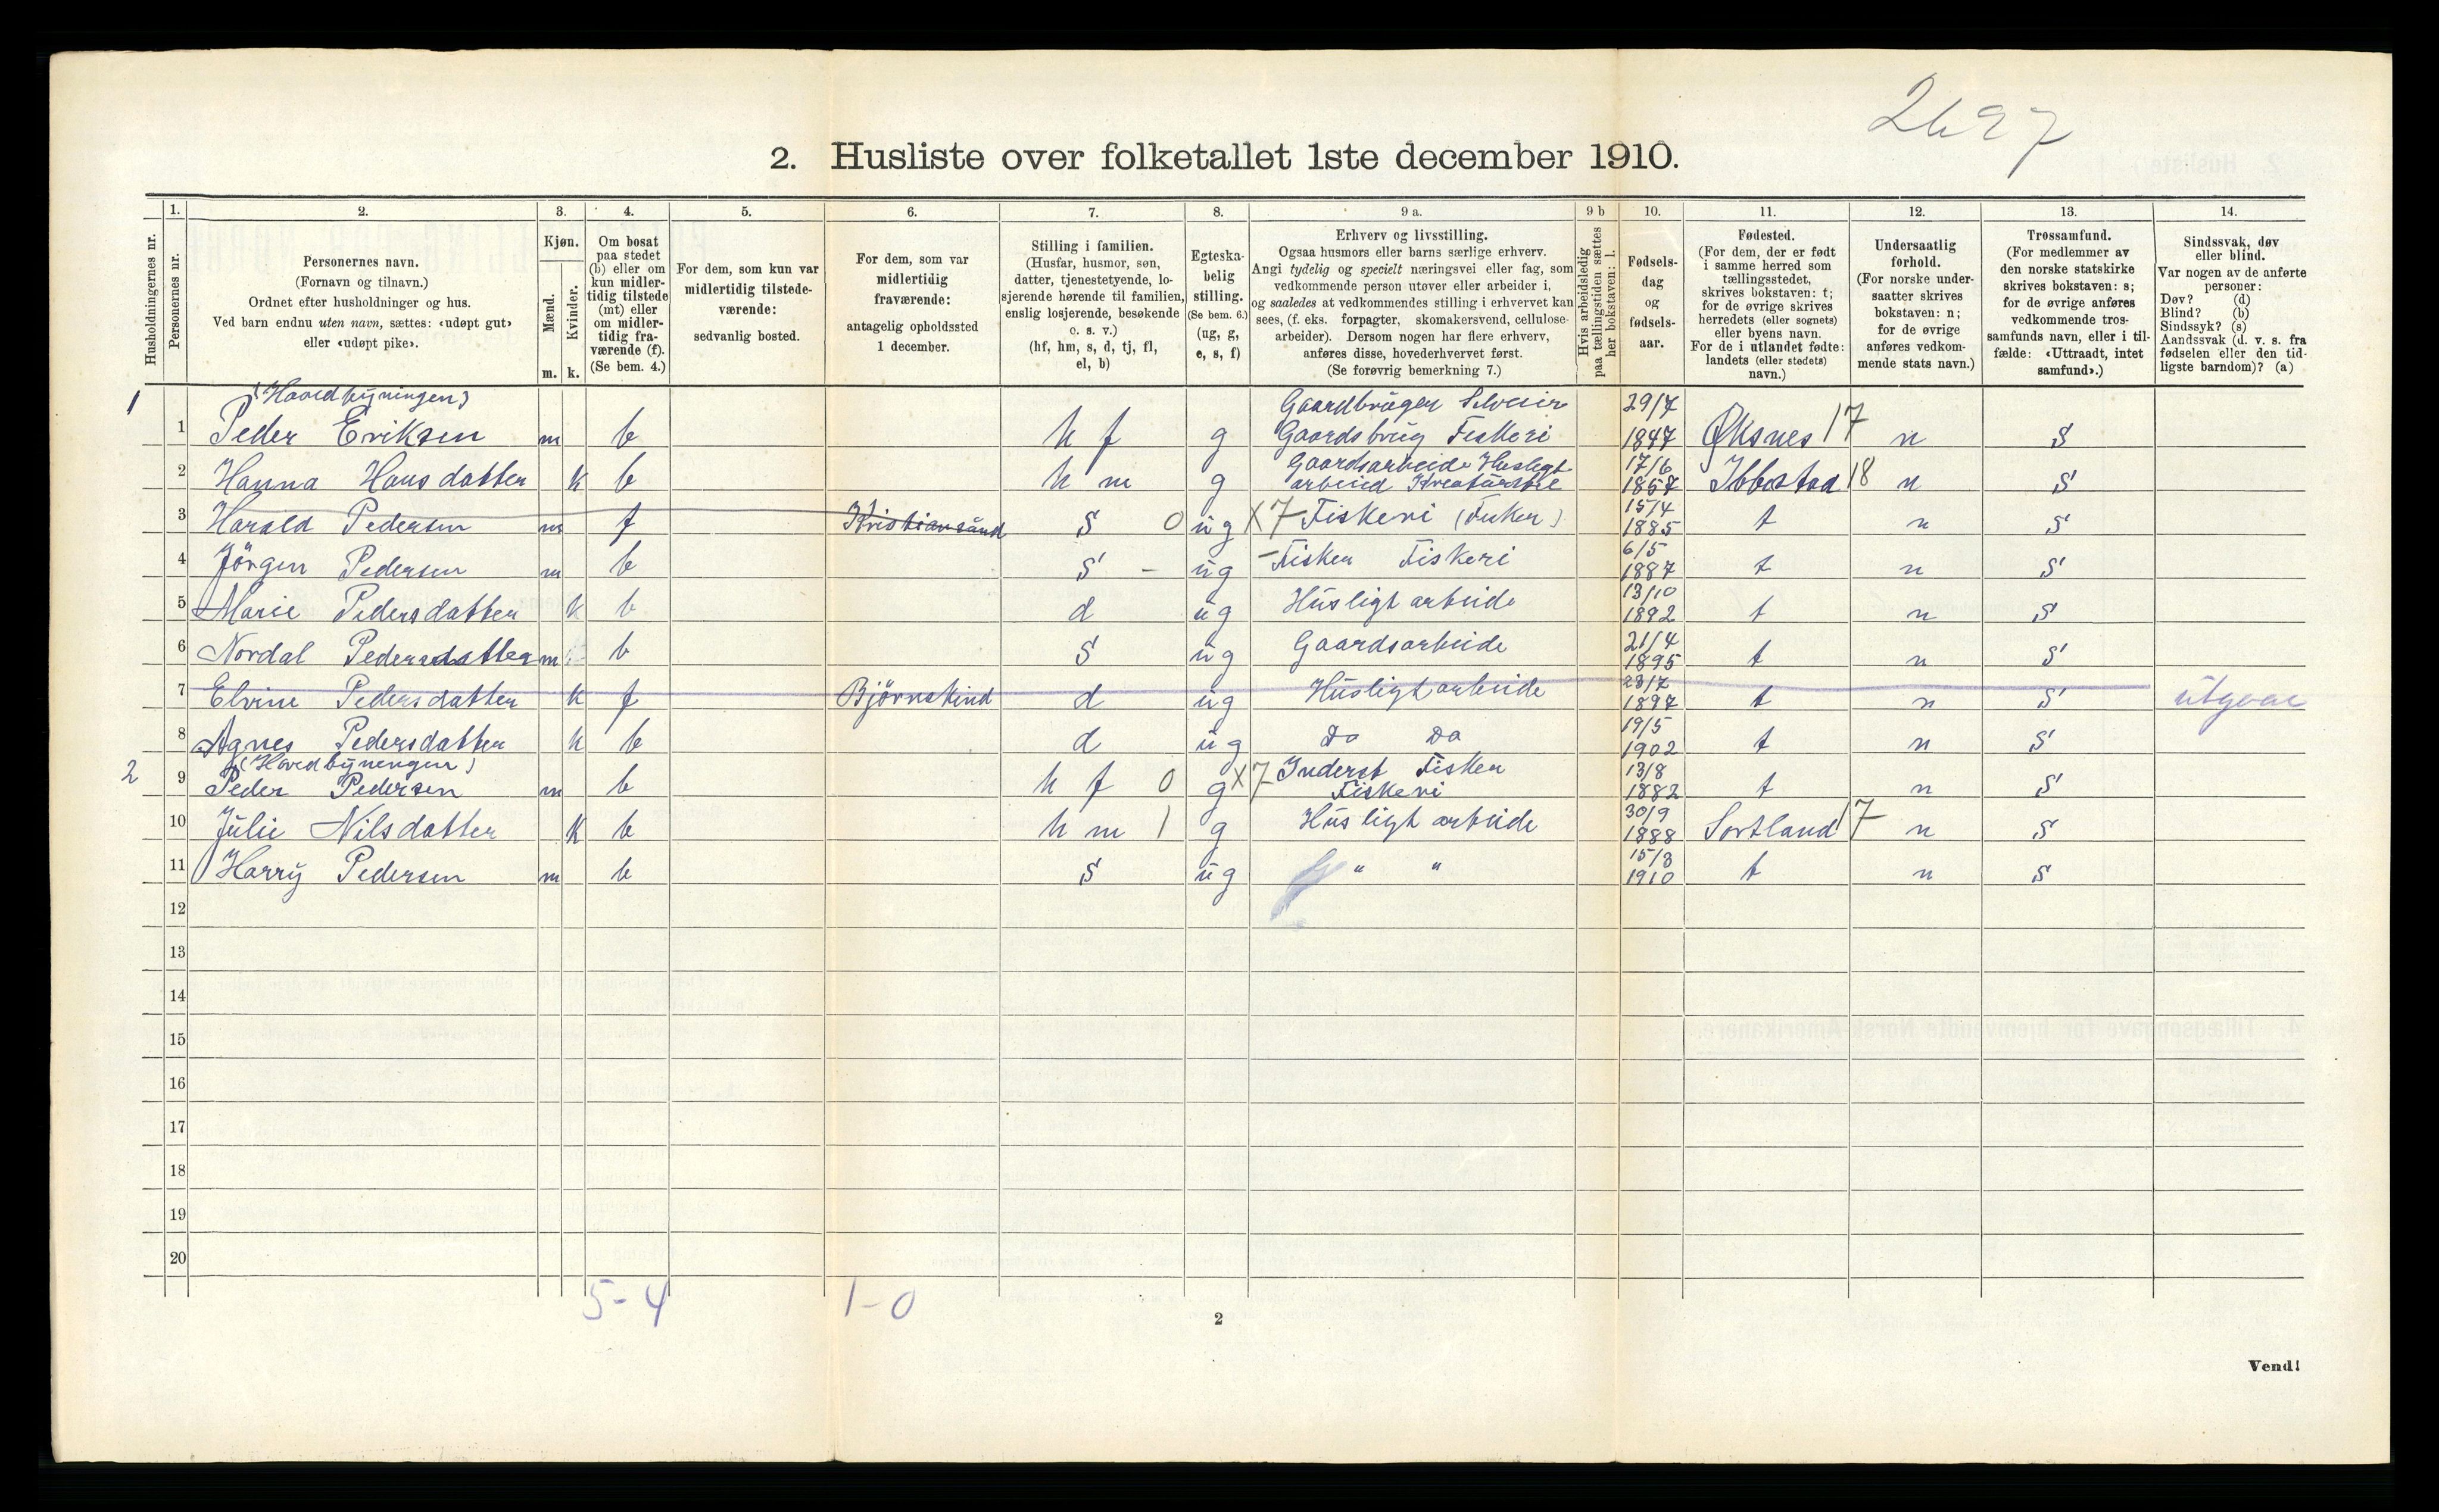 2697
2. Husliste over folketallet 1ste december 1910.
Husholdningernes nr.
1. Personernes nr.
2. Personernes navn. (Fornavn og tilnavn.) Ordnet efter husholdninger og hus. Ved barn endnu uten navn, sættes: «udøpt gut» eller «udøpt pike».
3. Kjøn. Mænd. m. Kvinder. k.
4. Om bosat paa stedet (b) eller om kun midler-tidig tilstede (mt) eller om midler-tidig fra-værende (f). (Se bem. 4.)
5. For dem, som kun var midlertidig tilstede-værende: sedvanlig bosted.
6. For dem, som var midlertidig fraværende: antagelig opholdssted 1 december.
7. Stilling i familien. (Husfar, husmor, søn, datter, tjenestetyende, lo-sjerende hørende til familien, enslig losjerende, besøkende o. s. v.) (hf, hm, s, d, tj, fl, el, b)
8. Egteska-belig stilling. (Se bem. 6.) (ug, g, e, s, f)
9 a. Erhverv og livsstilling. Ogsaa husmors eller barns særlige erhverv. Angi tydelig og specielt næringsvei eller fag, som vedkommende person utøver eller arbeider i, og saaledes at vedkommendes stilling i erhvervet kan sees, (f. eks. forpagter, skomakersvend, cellulose-arbeider). Dersom nogen har flere erhverv, anføres disse, hovederhvervet først. (Se forøvrig bemerkning 7.)
9 b Hvis arbeidsledig paa tællingstiden sættes her bokstaven: l.
10. Fødsels-dag og fødsels-aar.
11. Fødested. (For dem, der er født i samme herred som tællingsstedet, skrives bokstaven: t; for de øvrige skrives herredets (eller sognets) eller byens navn. For de i utlandet fødte: landets (eller stedets) navn.)
12. Undersaatlig forhold. (For norske under-saatter skrives bokstaven: n; for de øvrige anføres vedkom-mende stats navn.)
13. Trossamfund. (For medlemmer av den norske statskirke skrives bokstaven: s; for de øvrige anføres vedkommende tros-samfunds navn, eller i til-fælde: «Uttraadt, intet samfund».)
14. Sindssvak, døv eller blind. Var nogen av de anførte personer: Døv? (d) Blind? (b) Sindssyk? (s) Aandssvak (d. v. s. fra fødselen eller den tid-ligste barndom)? (a)
1 (Hovedbyningen)
1 Peder Eriksen m b h f g Gaardbruger Gaardsbrug Fiskeri 29/7 1847 Øksnes 17 n S
2 Hanna Hansdatter k b h m g Gaardsarbeide Husligt arbeid 17/6 1857 Ibbestad 18 n S
3 Harald Pedersen m f Kristiansund S 0 ug X7 Fiskeri (Fisker) 15/4 1885 t n S
4 Jörgen Pedersen m b S - ug - Fisker Fiskeri 6/5 1887 t n S
5 Marie Pedersdatter k b d ug Husligt arbeide 13/10 1892 t n S
6 Nordal Pedersdatter m b S ug Gaardsarbeide 21/4 1895 t n S
7 Elvine Pedersdatter k f Björnskind d ug Husligt arbeide 28/7 1897 t n S utgaar
8 Agnes Pedersdatter k b d ug Do Do 19/5 1902 t n S
2 (Hovedbyningen)
9 Peder Pedersen m b h f 0 g X7 Inderst Fisker Fiskeri 13/8 1882 t n S
10 Julie Nilsdatter k b h m 1 g Husligt arbeide 30/9 1888 Sortland 17 n S
11 Harry Pedersen m b S ug " " 15/3 1910 t n S
12
13
14
15
16
17
18
19
20
5-4 1-0
2
Vend!